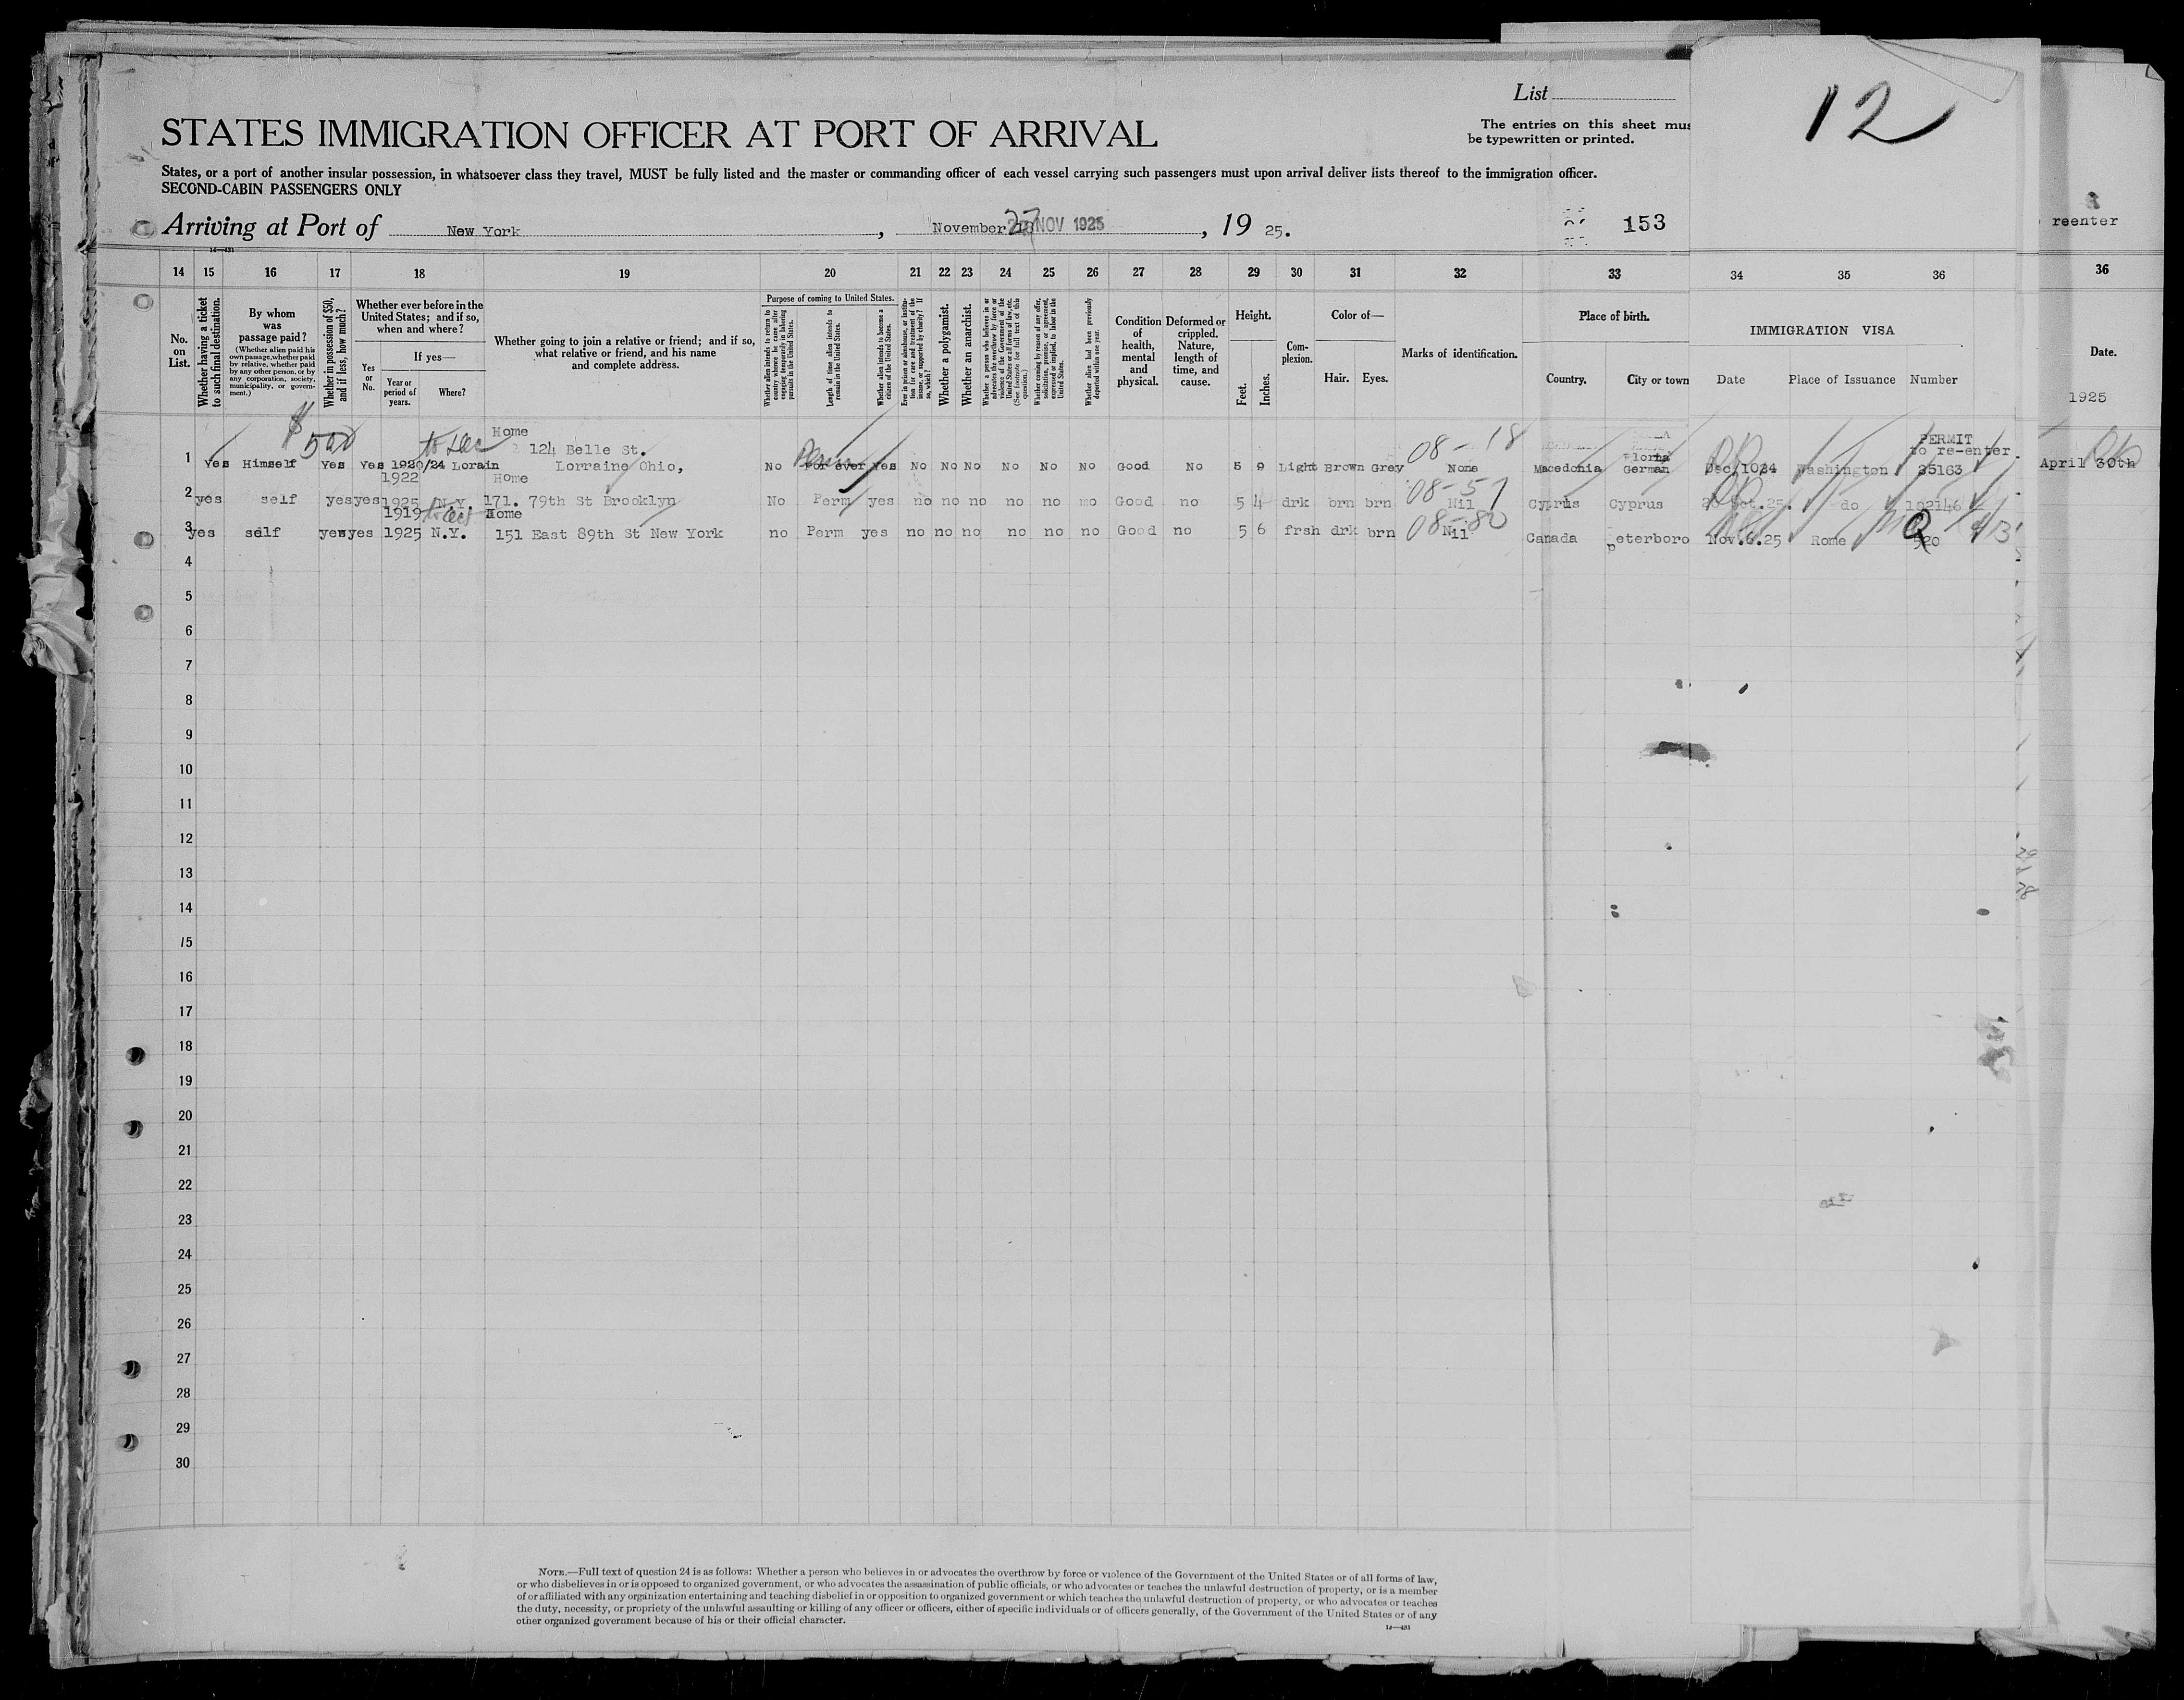 12
List
The entries on this sheet mus
be typewritten or printed.
STATES IMMIGRATION OFFICER AT PORT OF ARRIVAL
States, or a port of another insular possession, in whatsoever class they travel, MUST be fully listed and the master or commanding officer of each vessel carrying such passengers must upon arrival deliver lists thereof to the immigration officer.
SECOND-CABIN PASSENGERS ONLY
Arriving at Port of New York, November 27 NOV 1925, 19 25.
153
reenter
14 15 16 17 18 19 20 21 22 23 24 25 26 27 28 29 30 31 32 33 34 35 36 36
No. on List.
Whether having a ticket to such final destination.
By whom was passage paid?
(Whether alien paid his own passage, whether paid by relative, whether paid by any other person, or by any corporation, society, municipality, or government.)
Whether in possession of $50, and if less, how much?
Whether ever before in the United States; and if so, when and where?
Yes or No.
If yes—
Year or period of years.
Where?
Whether going to join a relative or friend; and if so, what relative or friend, and his name and complete address.
Purpose of coming to United States.
Whether alien intends to return to country whence he came after engaging temporarily in laboring pursuits in the United States.
Length of time alien intends to remain in the United States.
Whether alien intends to become a citizen of the United States.
Ever in prison or almshouse, or institution for care and treatment of the insane, or supported by charity? If so, which?
Whether a polygamist.
Whether an anarchist.
Whether a person who believes in or advocates the overthrow by force or violence of the Government of the United States or all forms of law, etc. (See footnote for full text of this question.)
Whether coming by reason of any offer, solicitation, promise, or agreement, expressed or implied, to labor in the United States.
Whether alien had been previously deported within one year.
Condition of health, mental and physical.
Deformed or crippled. Nature, length of time, and cause.
Height.
Feet.
Inches.
Complexion.
Color of—
Hair.
Eyes.
Marks of identification.
Place of birth.
Country.
City or town
IMMIGRATION VISA
Date
Place of Issuance
Number
Date.
1925
$500 to Dec Home
124 Belle St. 08-18 PERMIT
to re-enter
1 Yes Himself Yes Yes 1920/24 Lorain Lorraine Ohio, No Perm For ever Yes No No No No No No Good No 5 9 Light Brown Grey None Macedonia Florina German Dec/1024 Washington 35163 April 30th
1922 Home 08-57
2 yes self yes yes 1925 N.Y. 171. 79th St Brooklyn No Perm yes no no no no no mo Good no 5 4 drk brn brn Nil Cyprus Cyprus do 102146
1919 Home 08-80
3 yes self yes yes 1925 N.Y. 151 East 89th St New York no Perm yes no no no no no no Good no 5 6 frsh drk brn Nil Canada Peterboro Nov.6.25 Rome 520
4
5
6
7
8
9
10
11
12
13
14
15
16
17
18
19
20
21
22
23
24
25
26
27
28
29
30
NOTE.—Full text of question 24 is as follows: Whether a person who believes in or advocates the overthrow by force or violence of the Government of the United States or of all forms of law,
or who disbelieves in or is opposed to organized government, or who advocates the assassination of public officials, or who advocates or teaches the unlawful destruction of property, or is a member
of or affiliated with any organization entertaining and teaching disbelief in or opposition to organized government or which teaches the unlawful destruction of property, or who advocates or teaches
the duty, necessity, or propriety of the unlawful assaulting or killing of any officer or officers, either of specific individuals or of officers generally, of the Government of the United States or of any
other organized government because of his or their official character.
14—431